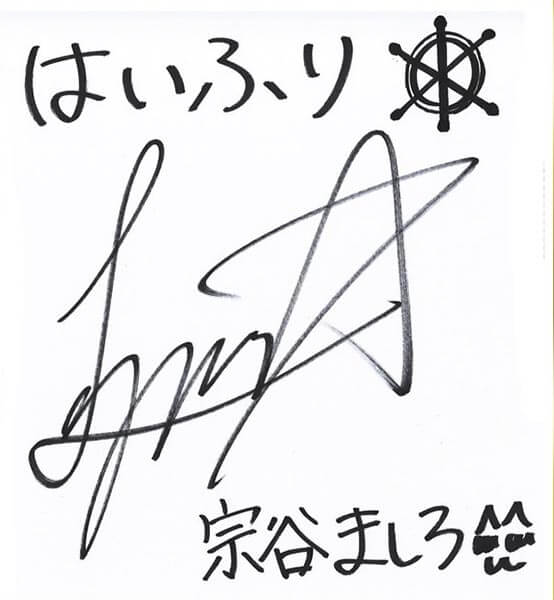 はいふり
宗谷ましろ